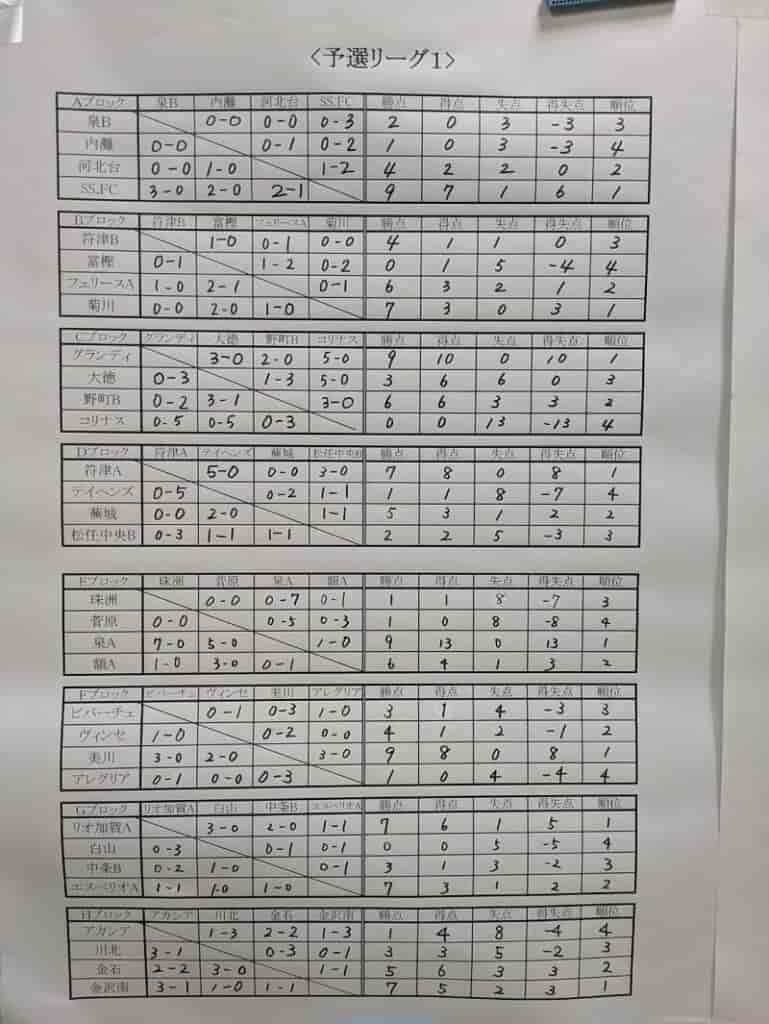 〈予選リーグ1〉
Aブロック 泉B 内灘 河北台 SS.FC 勝点 得点 失点 得失点 順位
泉B 0-0 0-0 0-3 2 0 3 -3 3
内灘 0-0 0-1 0-2 1 0 3 -3 4
河北台 0-0 1-0 1-2 4 2 2 0 2
SS.FC 3-0 2-0 2-1 9 7 1 6 1
Bブロック 符津B 富樫 フェリースA 菊川 勝点 得点 失点 得失点 順位
符津B 1-0 0-1 0-0 4 1 1 0 3
富樫 0-1 1-2 0-2 0 1 5 -4 4
フェリースA 1-0 2-1 0-1 6 3 2 1 2
菊川 0-0 2-0 1-0 7 3 0 3 1
Cブロック グランディ 大徳 野町B コリナス 勝点 得点 失点 得失点 順位
グランディ 3-0 2-0 5-0 9 10 0 10 1
大徳 0-3 1-3 5-0 3 6 6 0 3
野町B 0-2 3-1 3-0 6 6 3 3 2
コリナス 0-5 0-5 0-3 0 0 13 -13 4
Dブロック 符津A テイヘンズ 蕪城 松任中央B 勝点 得点 失点 得失点 順位
符津A 5-0 0-0 3-0 7 8 0 8 1
テイヘンズ 0-5 0-2 1-1 1 1 8 -7 4
蕪城 0-0 2-0 1-1 5 3 1 2 2
松任中央B 0-3 1-1 1-1 2 2 5 -3 3
Eブロック 珠洲 菅原 泉A 額A 勝点 得点 失点 得失点 順位
珠洲 0-0 0-7 0-1 1 1 8 -7 3
菅原 0-0 0-5 0-3 1 0 8 -8 4
泉A 7-0 5-0 1-0 9 13 0 13 1
額A 1-0 3-0 0-1 6 4 1 3 2
Fブロック ビバーチェ ヴィンセ 美川 アレグリア 勝点 得点 失点 得失点 順位
ビバーチェ 0-1 0-3 1-0 3 1 4 -3 3
ヴィンセ 1-0 0-2 0-0 4 1 2 -1 2
美川 3-0 2-0 3-0 9 8 0 8 1
アレグリア 0-1 0-0 0-3 1 0 4 -4 4
Gブロック リオ加賀A 白山 中条B エスペリオA 勝点 得点 失点 得失点 順位
リオ加賀A 3-0 2-0 1-1 7 6 1 5 1
白山 0-3 0-1 0-1 0 0 5 -5 4
中条B 0-2 1-0 0-1 3 1 3 -2 3
エスペリオA 1-1 1-0 1-0 7 3 1 2 2
Hブロック アカシア 川北 金石 金沢南 勝点 得点 失点 得失点 順位
アカシア 1-3 2-2 1-3 1 4 8 -4 4
川北 3-1 0-3 0-1 3 3 5 -2 3
金石 2-2 3-0 1-1 5 6 3 3 2
金沢南 3-1 1-0 1-1 7 5 2 3 1